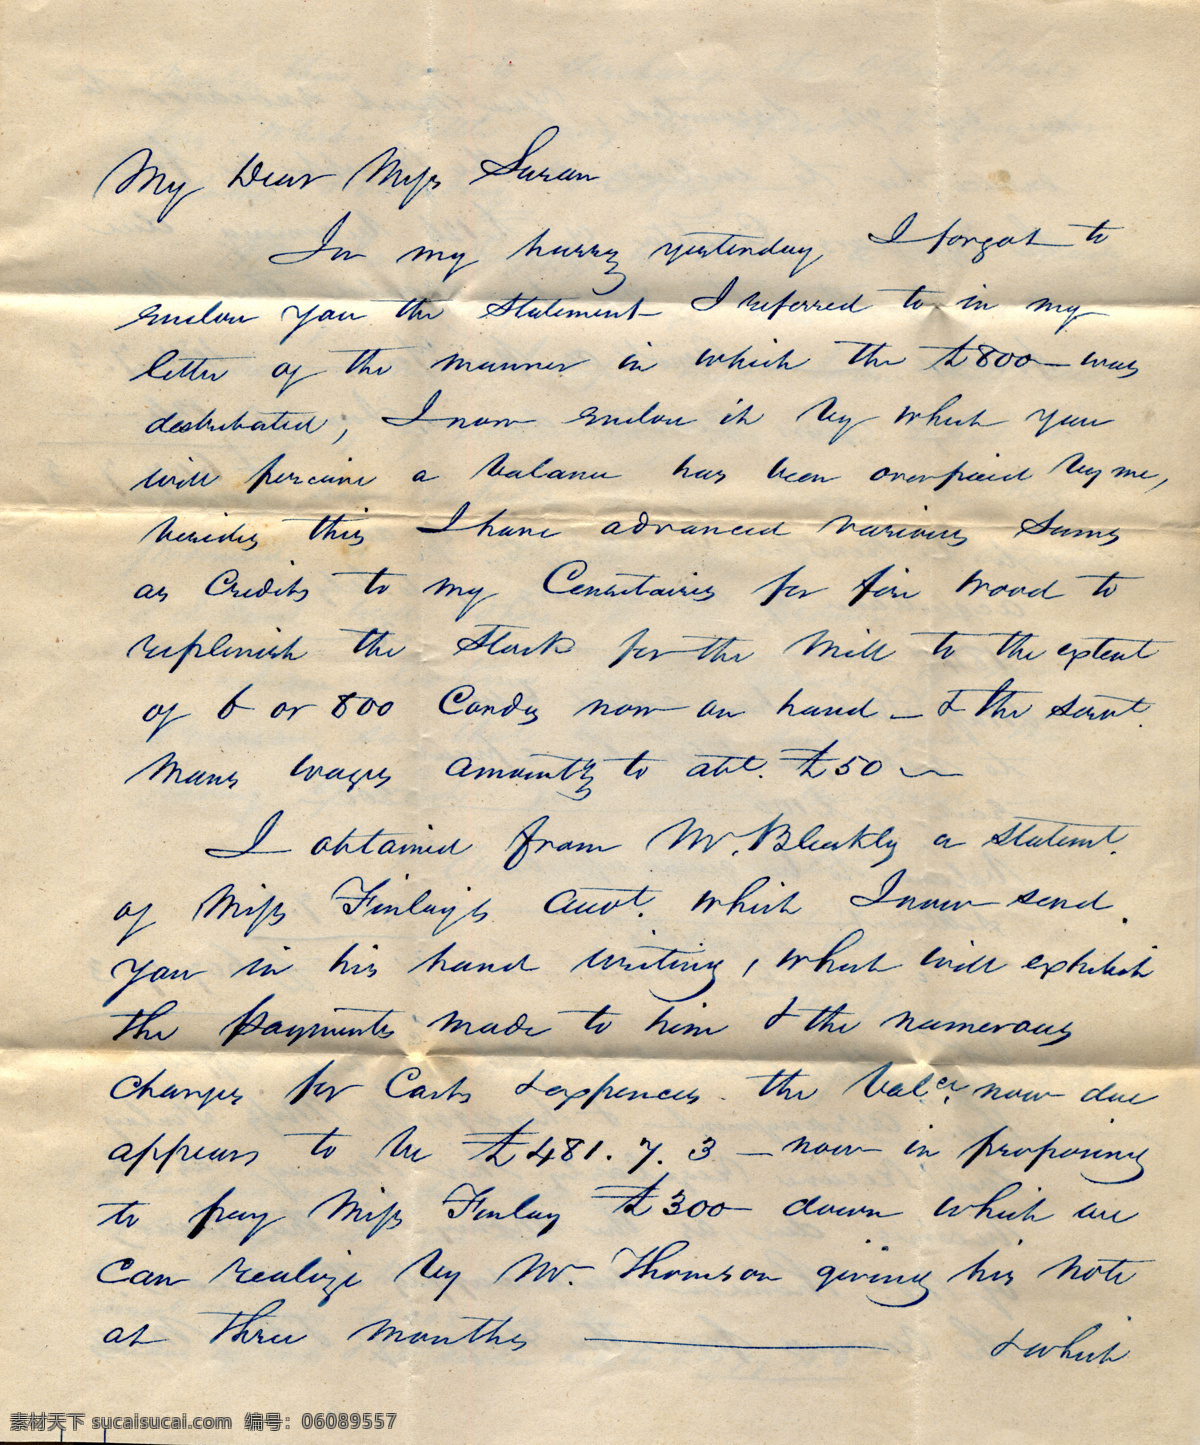 My Dear Miss Susan
In my hurry yesterday I forgot to
enclose you the Statement I referred to in my
letter of the manner in which the £800 — was
destributed, I now enclose it by which you
will perceive a balance has been overpaid by me,
besides this I have advanced various Sums
as Credits to my Censitaires for fire wood to
replenish the Stock for the Mill to the extent
of 6 or 800 Cords now on hand — & the
Mans wages amounts to abt. £50
I obtained from Mr. Bleakly a Statemt.
of Miss Finlay's Acct. which I now send
you in his hand writing, which will exhibit
the payments made to him & the numerous
charges for Costs & expences. the Balce. now due
appears to be £481. 7. 3 — now in proposing
to pay Miss Finlay £300 — down which we
can realize by Mr. Thomson giving his Note
at three months —— & which
素材天下 sucaisucai.com 编号：06089557